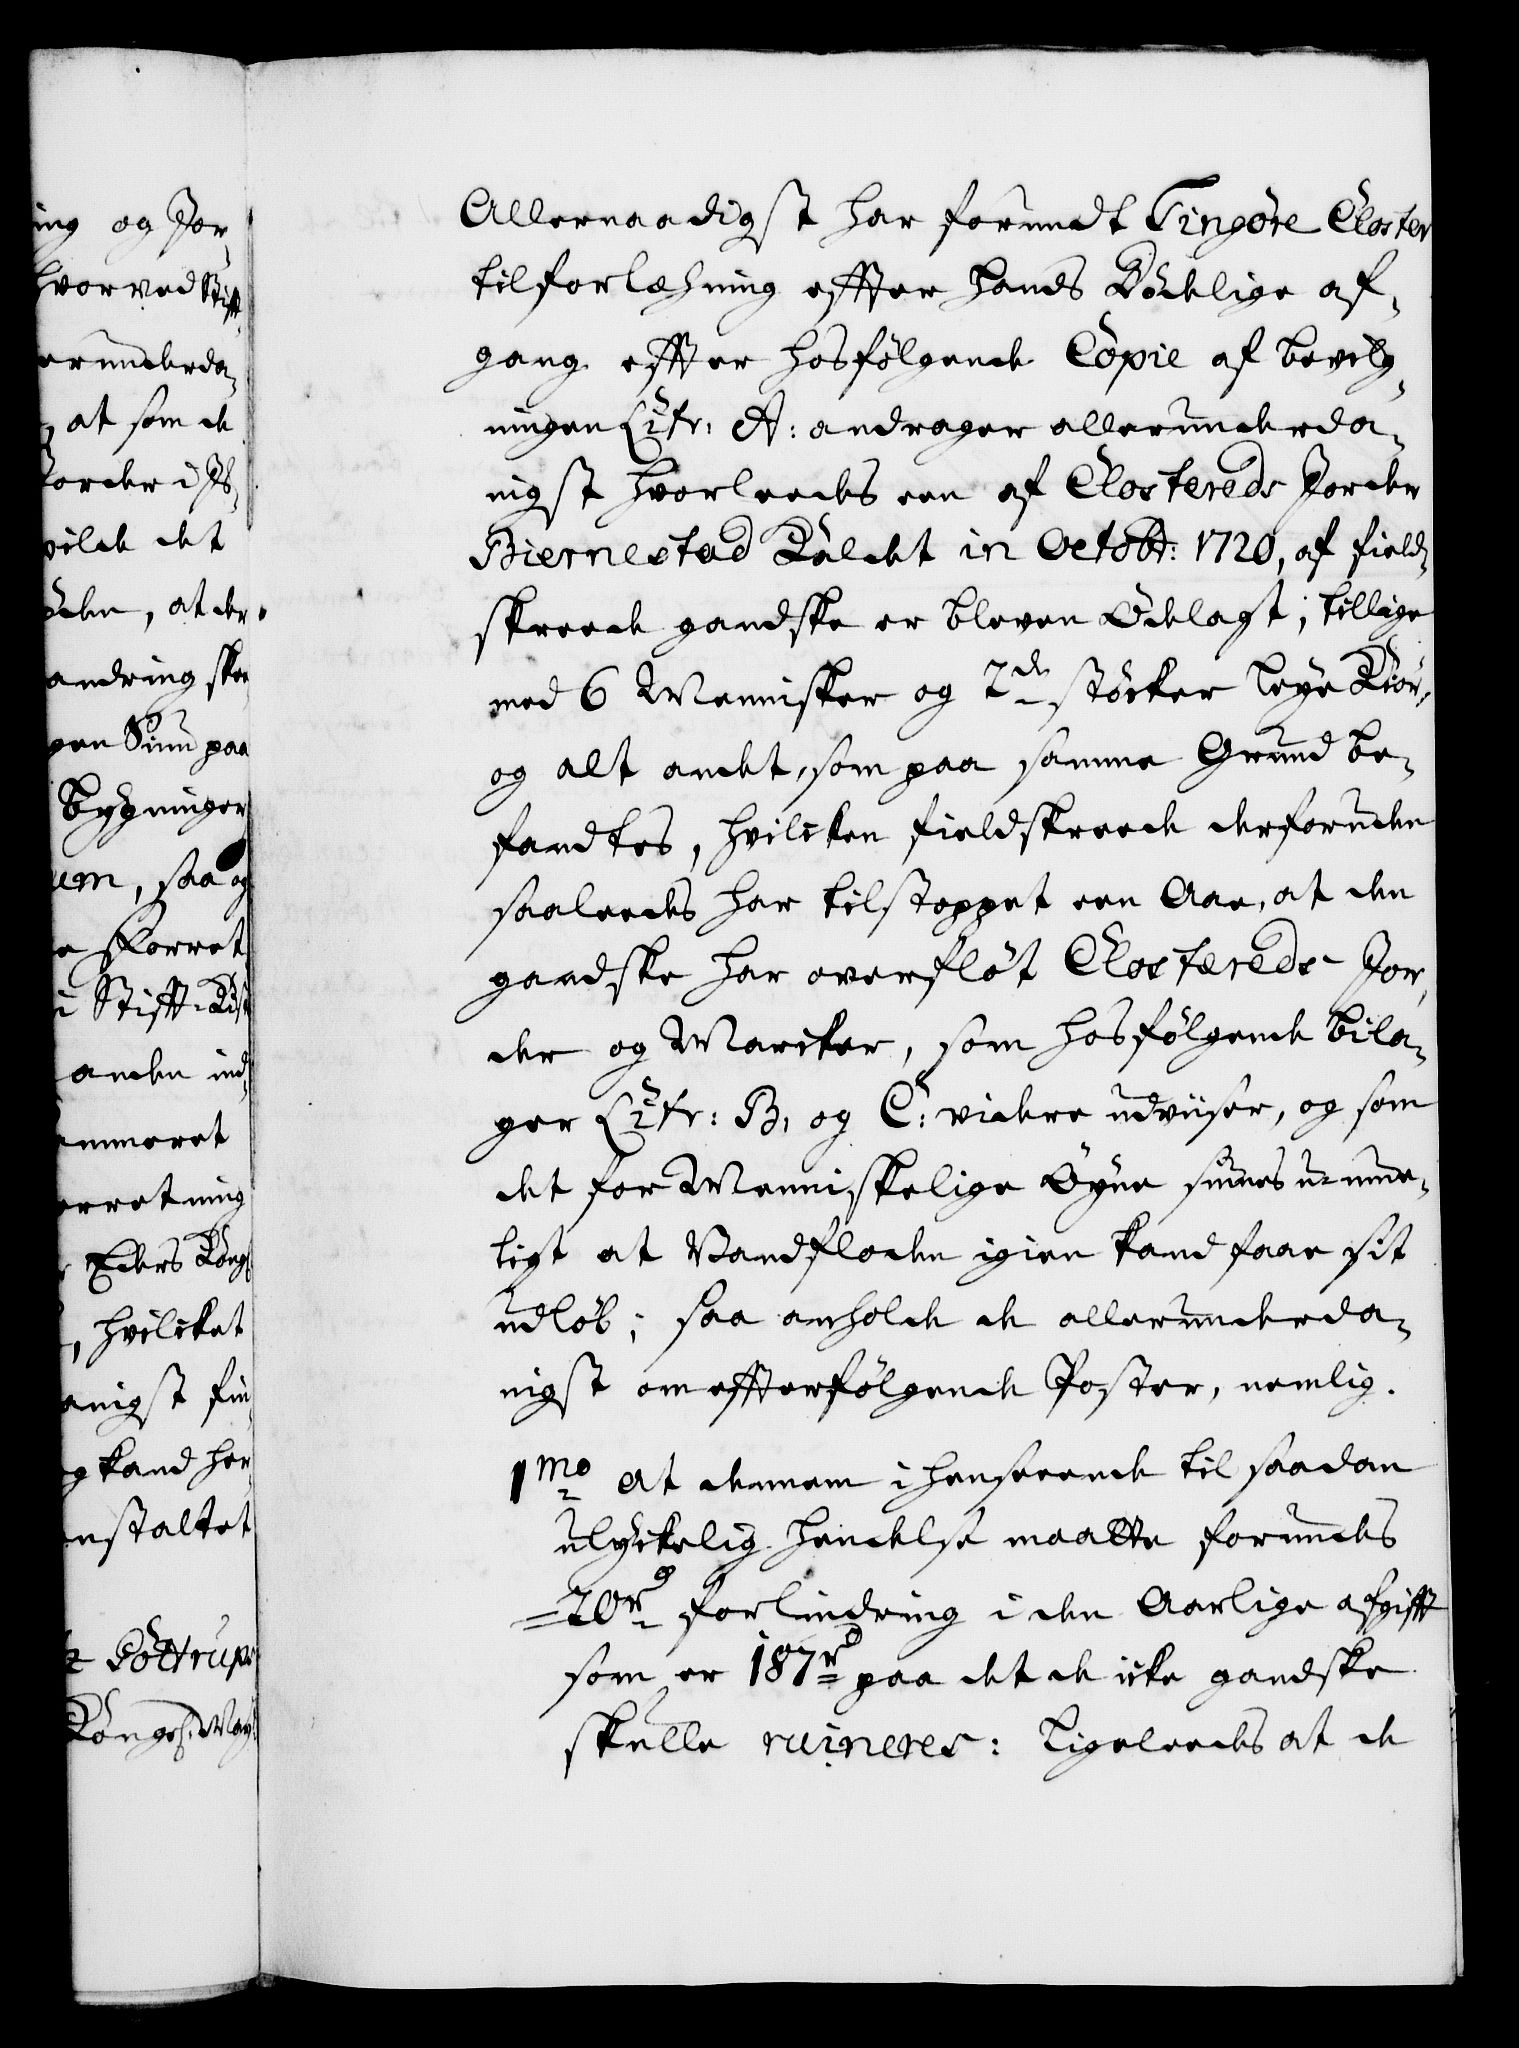 ing og Jor¬
hvorved Stift¬
erunderda¬
at som de
Jorder i Is¬
vilde det
den, at der
andring skee
gen Sinn paa
bygninger
um, saa og
e Forret
i Stifft-Kist
anden ind¬
ammeret
erretning
Eders Kong
, hvilcket
anigst fin¬
g kand her¬
nstaltet
Göttrup
Konges: May:
Allernaadigst har forundt Tingöre Closter
til forlæhning effter hands Dödelige af¬
gang effter hosfølgende Copie af bevilg¬
ningen Litr: A: andrager allerunderda¬
nigst hvorleedes een af Closterets Jorder
Biernestad Kaldet in Octobr: 1720, af field¬
skreede gandske er bleven Ödelagt, tillige
med 6 Mennisker og 2de støcker leye Kiör,
og alt andet, som paa samme Grund be¬
fandtes, hvilcken fieldskreede derforuden
saaleedes har tilstoppet een Aae, at den
gandske har overfløt Closterets Jor¬
der og Marcker, som hosfølgende bila¬
ger Litr: B, og C: videre udviiser, og som
det for Menniskelige Öyne siunes u-mue¬
ligt at Vandfloden igien kand faae sit
udløb; saa anholde de allerunderda¬
nigst om effterfølgende Poster, nemlig.
1mo At dennem i henseende til saadan
ulyckelig hendelse maatte forundes
20rd forlindring i den Aarlige afgifft
som er 187rd paa det de icke gandske
skulle ruineres: Ligeleedes at de